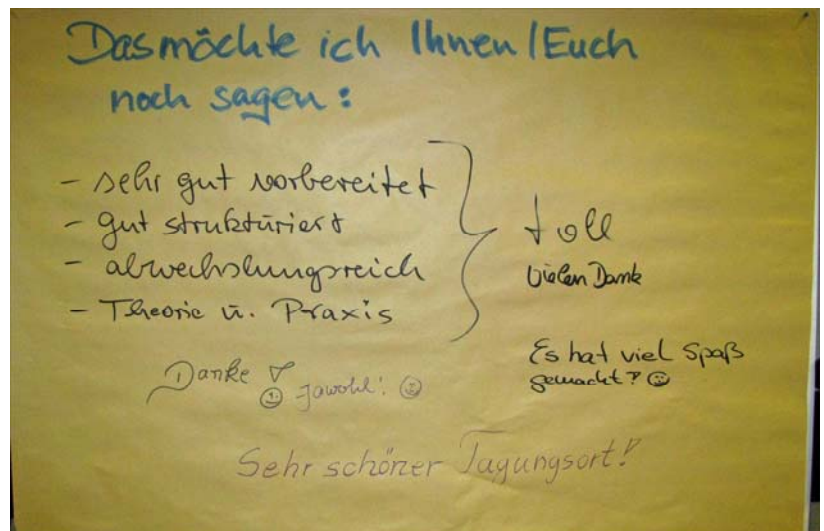 Das möchte ich Ihnen / Euch
noch sagen:
- sehr gut vorbereitet
- gut strukturiert
- abwechslungsreich
- Theorie u. Praxis
toll
vielen Dank
Es hat viel Spaß
gemacht! ☺
Danke! ☺ jawohl! ☺
Sehr schöner Tagungsort!